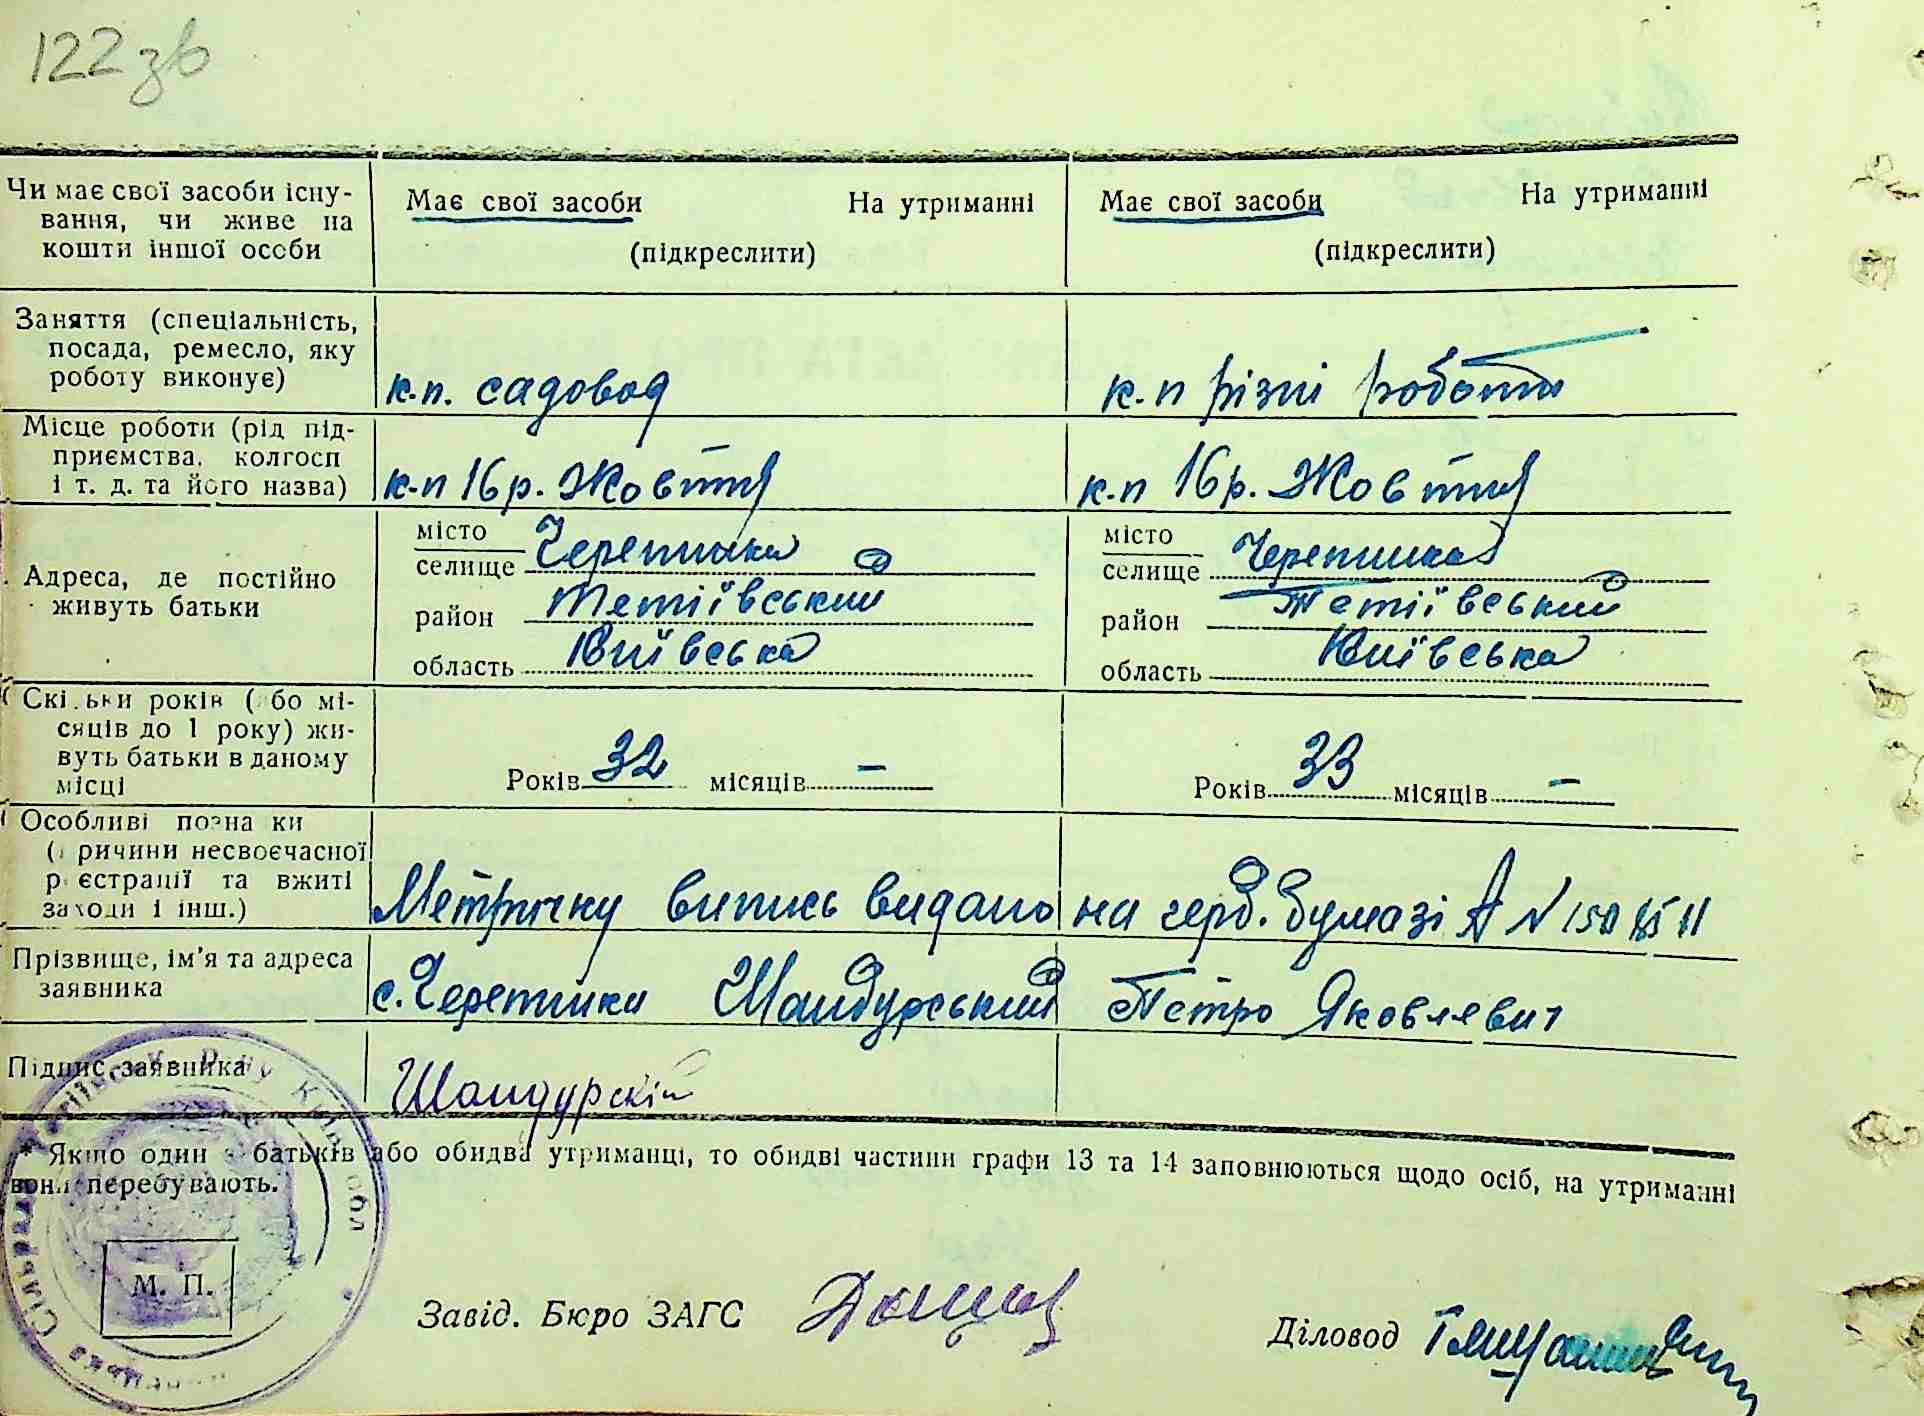 122 зв
Чи має свої засоби існу-
вання, чи живе на
кошти іншої особи
Має свої засоби На утриманні
(підкреслити)
Має свої засоби На утриманні
(підкреслити)
Заняття (спеціальність,
посада, ремесло, яку
роботу виконує)
к.п. садовод
к.п різні роботи
Місце роботи (рід під-
приємства, колгосп
і т. д. та його назва)
к.п 16 р. Жовтня
к.п 16 р. Жовтня
Адреса, де постійно
живуть батьки
місто
селище Черепинка
район Тетіївський
область Київська
місто
селище Черепинка
район Тетіївський
область Київська
Скільки років (або мі-
сяців до 1 року) жи-
вуть батьки в даному
місці
Років 32 місяців —
Років 33 місяців —
Особливі познаки
(причини несвоєчасної
реєстрації та вжиті
заходи і інш.)
Метричку випись видано на герб. бумазі А N
Прізвище, ім'я та адреса
заявника
с. Черепинка Шандурський Петро Яковлевич
Підпис заявника
Шандурскій
* Якщо один з батьків або обидва утриманці, то обидві частини графи 13 та 14 заповнюються щодо осіб, на утриманні
вони перебувають.
М. П.
Завід. Бюро ЗАГС
Діловод